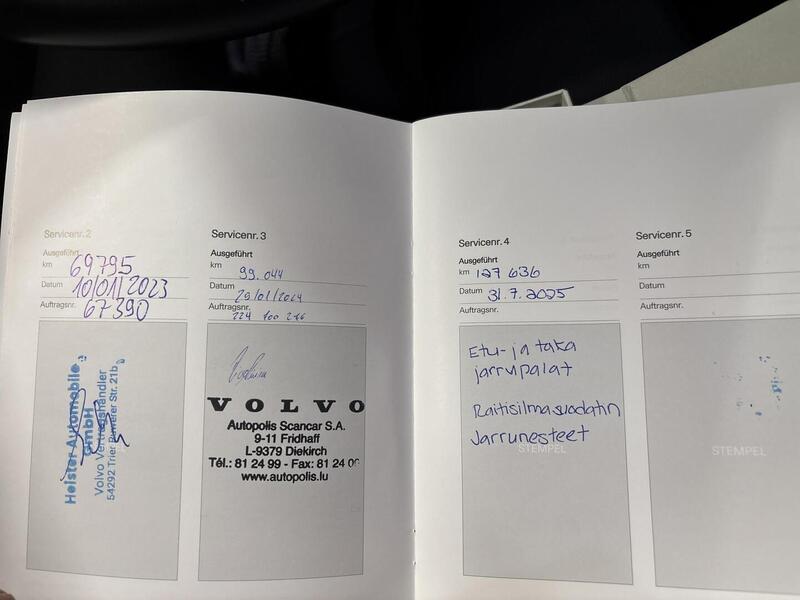 Servicenr. 2
Ausgeführt
km 69795
Datum 10/01/2023
Auftragsnr. 67390
Heister Automobile
GmbH
Volvo Vertragshändler
54292 Trier Ruwerer Str. 21b
Servicenr. 3
Ausgeführt
km 99.044
Datum 29/01/2024
Auftragsnr. 224 100 216
VOLVO
Autopolis Scancar S.A.
9-11 Fridhaff
L-9379 Diekirch
Tél.: 81 24 99 - Fax: 81 24
www.autopolis.lu
Servicenr. 4
Ausgeführt
km 127 636
Datum 31.7.2025
Auftragsnr.
Etu- ja taka
jarrupalat
Raitisilmasuodatin
Jarrunesteet
STEMPEL
Servicenr. 5
Ausgeführt
km
Datum
Auftragsnr.
STEMPEL